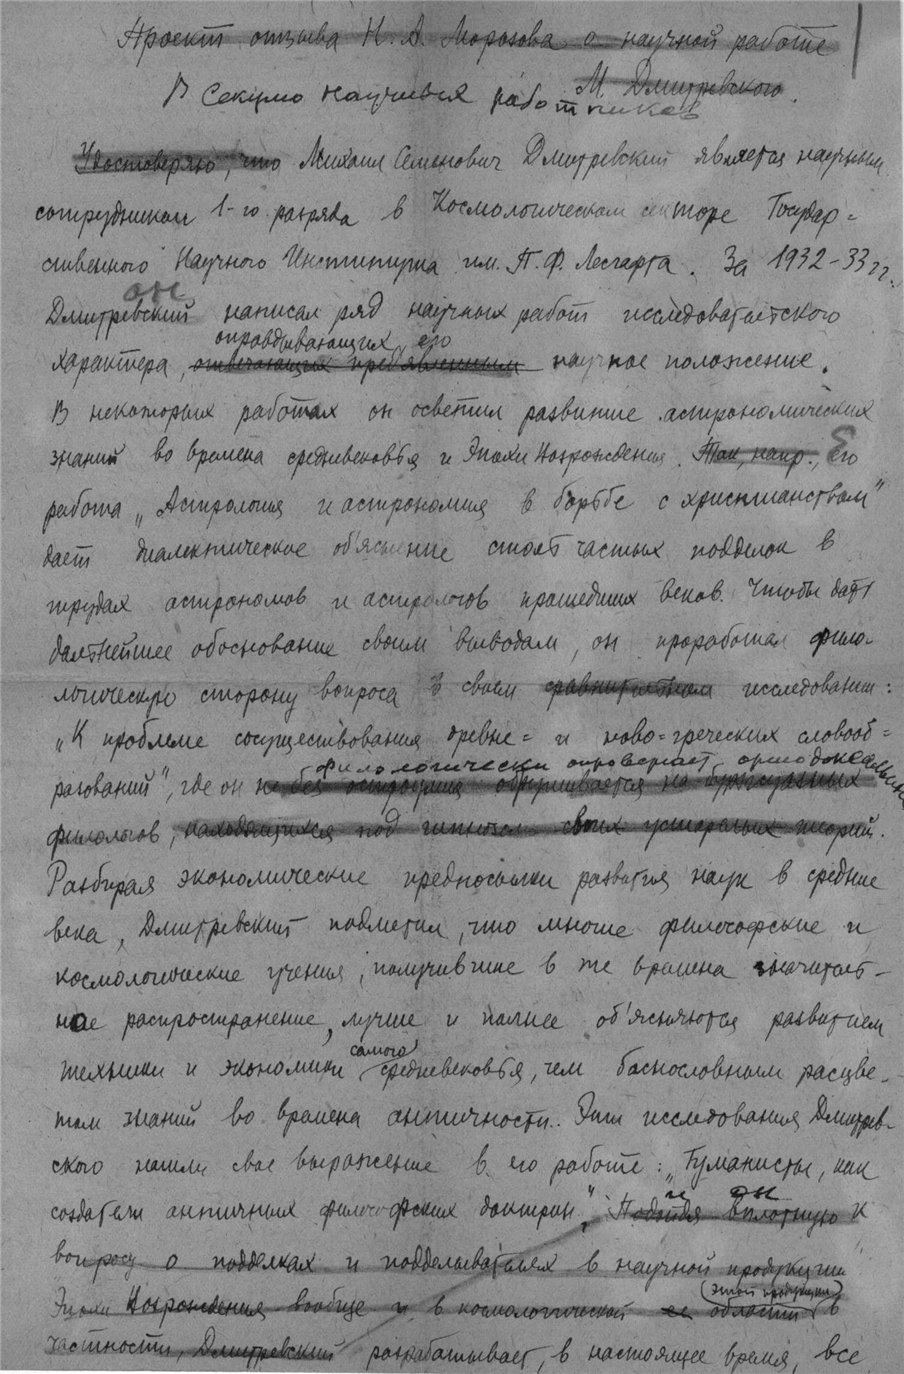 Проект отзыва Н. А. Морозова о научной работе
М. Дмитревского.
В Секцию научных работников
Удостоверяю, что Михаил Семенович Дмитревский является научным
сотрудником 1-го разряда в Космологическом секторе Государ=
ственного Научного Института им. П. Ф. Лесгафта. За 1932-33 гг.
он
Дмитревский написал ряд научных работ исследовательского
оправдывающих его
характера, отвечающих пред'явленным научное положение.
В некоторых работах он осветил развитие астрономических
знаний во времена средневековья и Эпохи Возрождения. Так, напр., Его
работа „Астрология и астрономия в борьбе с христианством"
дает диалектическое об'яснение столь частых подделок в
трудах астрономов и астрологов прошедших веков. Чтобы дать
дальнейшее обоснование своим выводам, он проработал фило-
логическую сторону вопроса в своем исследовании:
„К проблеме сосуществования древне= и ново=греческих словооб=
филологически опровергает ортодоксальных
разований", где он не без остроумия обрушивается на буржуазных
филологов, находящихся под гипнозом своих устарелых теорий.
Разбирая экономические предпосылки развития наук в средние
века, Дмитревский подметил, что многие философские и
космологические учения, получившие в те времена значитель-
ное распространение, лучше и полнее об'ясняются развитием
самого
техники и экономики средневековья, чем баснословным расцве-
том знаний во времена античности. Эти исследования Дмитрев-
ского нашли свое выражение в его работе: „Гуманисты, как
и он
создатели античных философских доктрин". Подойдя вплотную к
вопросу о подделках и подделывателях в научной продукции
(этой продукции)
Эпохи Возрождения вообще и в космологической ее области в
частности, Дмитревский разрабатывает, в настоящее время, все